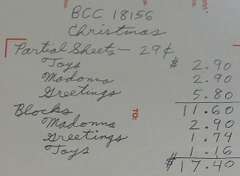 BCC 18156
Christmas
Partial Sheets - 29¢
Toys $ 2.90
Madonna 2.90
Greetings 5.80
Blocks 11.60
Madonna 2.90
Greetings 1.74
Toys 1.16
$17.40
TO: